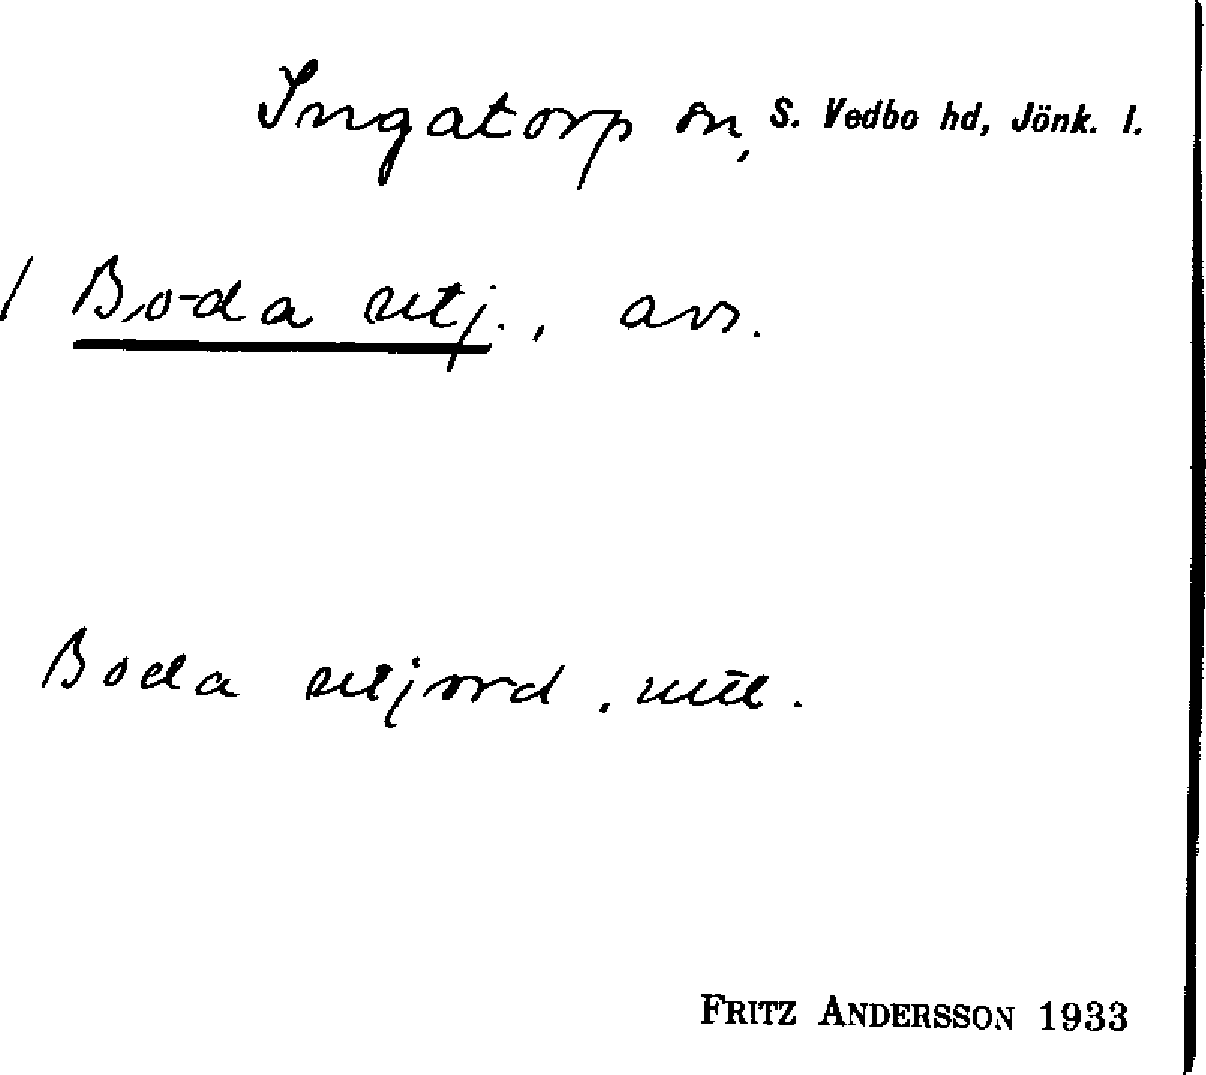 Ingatorp sn, S. Vedbo hd, Jönk. l.
/ Boda utj., avs.
Boda utjord.
FRITZ ANDERSSON 1933